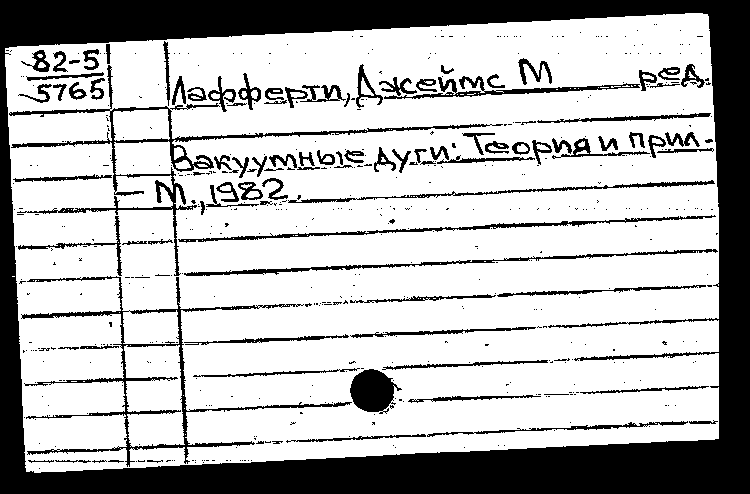 82-5
5765
Лафферти, Джеймс М ред.
Вакуумные дуги: Теория и прил.
— М., 1982.